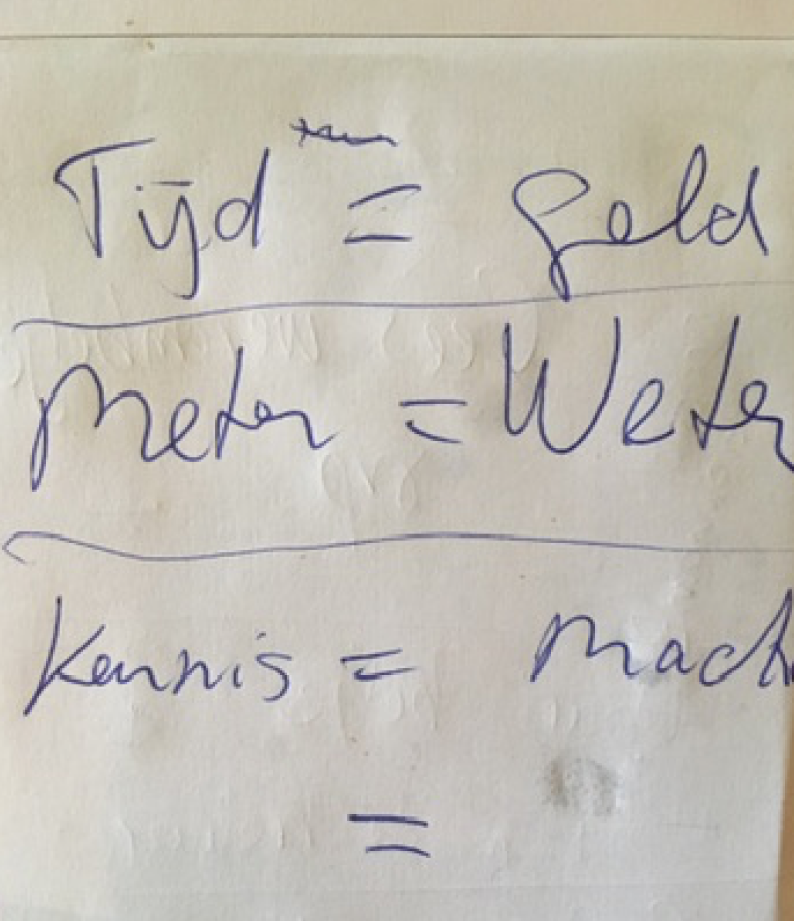 Tijd = geld
Meten = Weten
Kennis = Macht
=